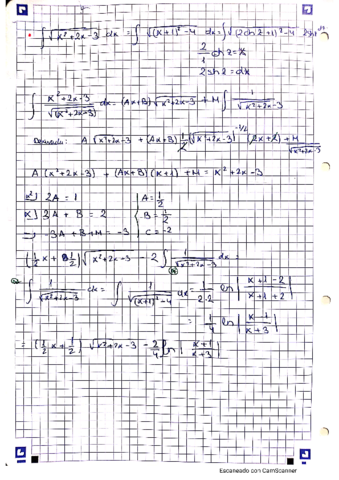 ∫ √(x²+2x-3) dx = ∫ √((x+1)²-4) dx = ∫ √((2ch z+1)²-4)
2/1 ch z = x
2 sh z = dx
∫ (x²+2x-3)/√(x²+2x+3) dx = (Ax+B) √(x²+2x-3) + M ∫ 1/√(x²+2x-3)
Derivada: A √(x²+2x-3) + (Ax+B) 1/2 (√(x²+2x-3))^(-1/2) (2x+2) + M/√(x²+2x-3)
A (x²+2x-3) + (Ax+B)(x+1) + M = x²+2x-3
x²) 2A = 1
x) 3A + B = 2
-) -3A+B+M = -3
A = 1/2
B = 1/2
C = -2
(1/2 x + 1/2) √(x²+2x-3) - 2 ∫ 1/√(x²+2x-3) dx =
∫ 1/√(x²+2x-3) dx = ∫ 1/√((x+1)²-4) dx = 1/(2·2) ln |(x+1-2)/(x+1+2)|
= 1/4 ln |(x-1)/(x+3)|
= (1/2 x + 1/2) √(x²+2x-3) - 2/4 ln |(x+1)/(x+3)|
Escaneado con CamScanner